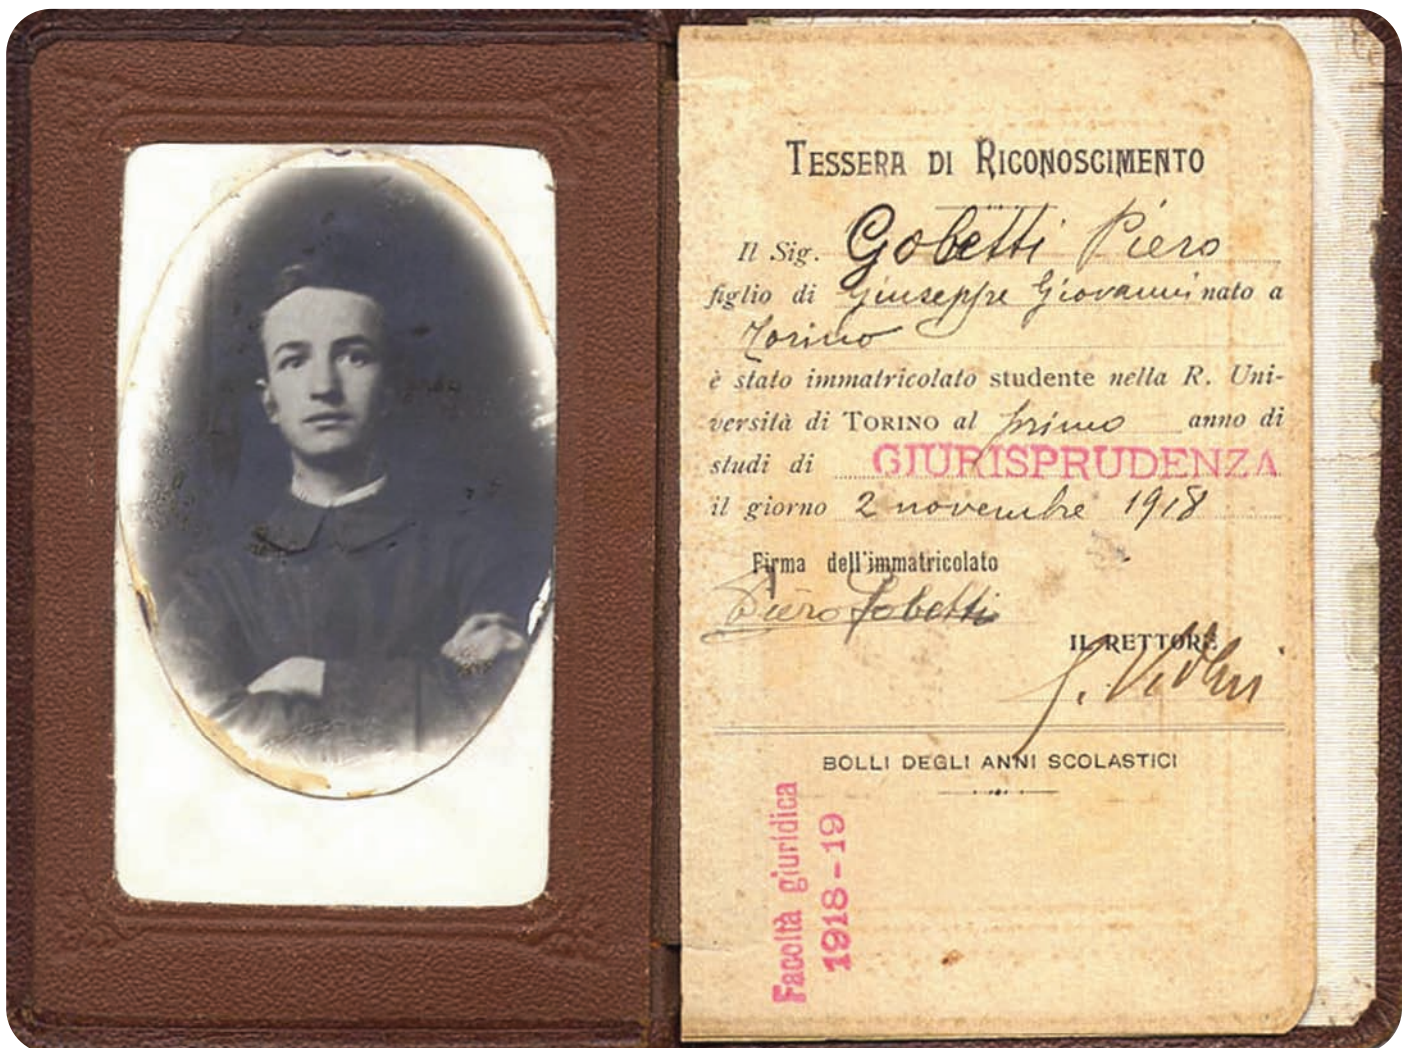 TESSERA DI RICONOSCIMENTO
Il Sig. Gobetti Piero
figlio di Giuseppe Giovanni nato a
Torino
è stato immatricolato studente nella R. Uni-
versità di TORINO al primo anno di
studi di GIURISPRUDENZA
il giorno 2 novembre 1918
Firma dell'immatricolato
Piero Gobetti
IL RETTORE
BOLLI DEGLI ANNI SCOLASTICI
Facoltà giuridica
1918-19